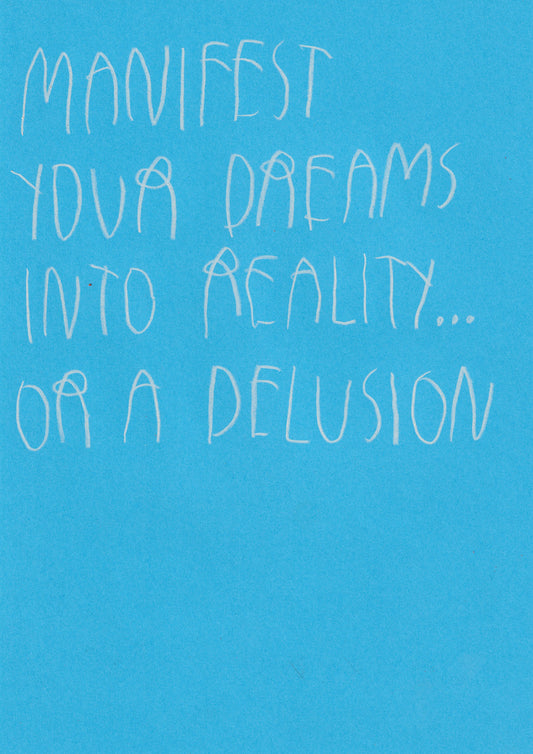 MANIFEST
YOUR DREAMS
INTO REALITY...
OR A DELUSION